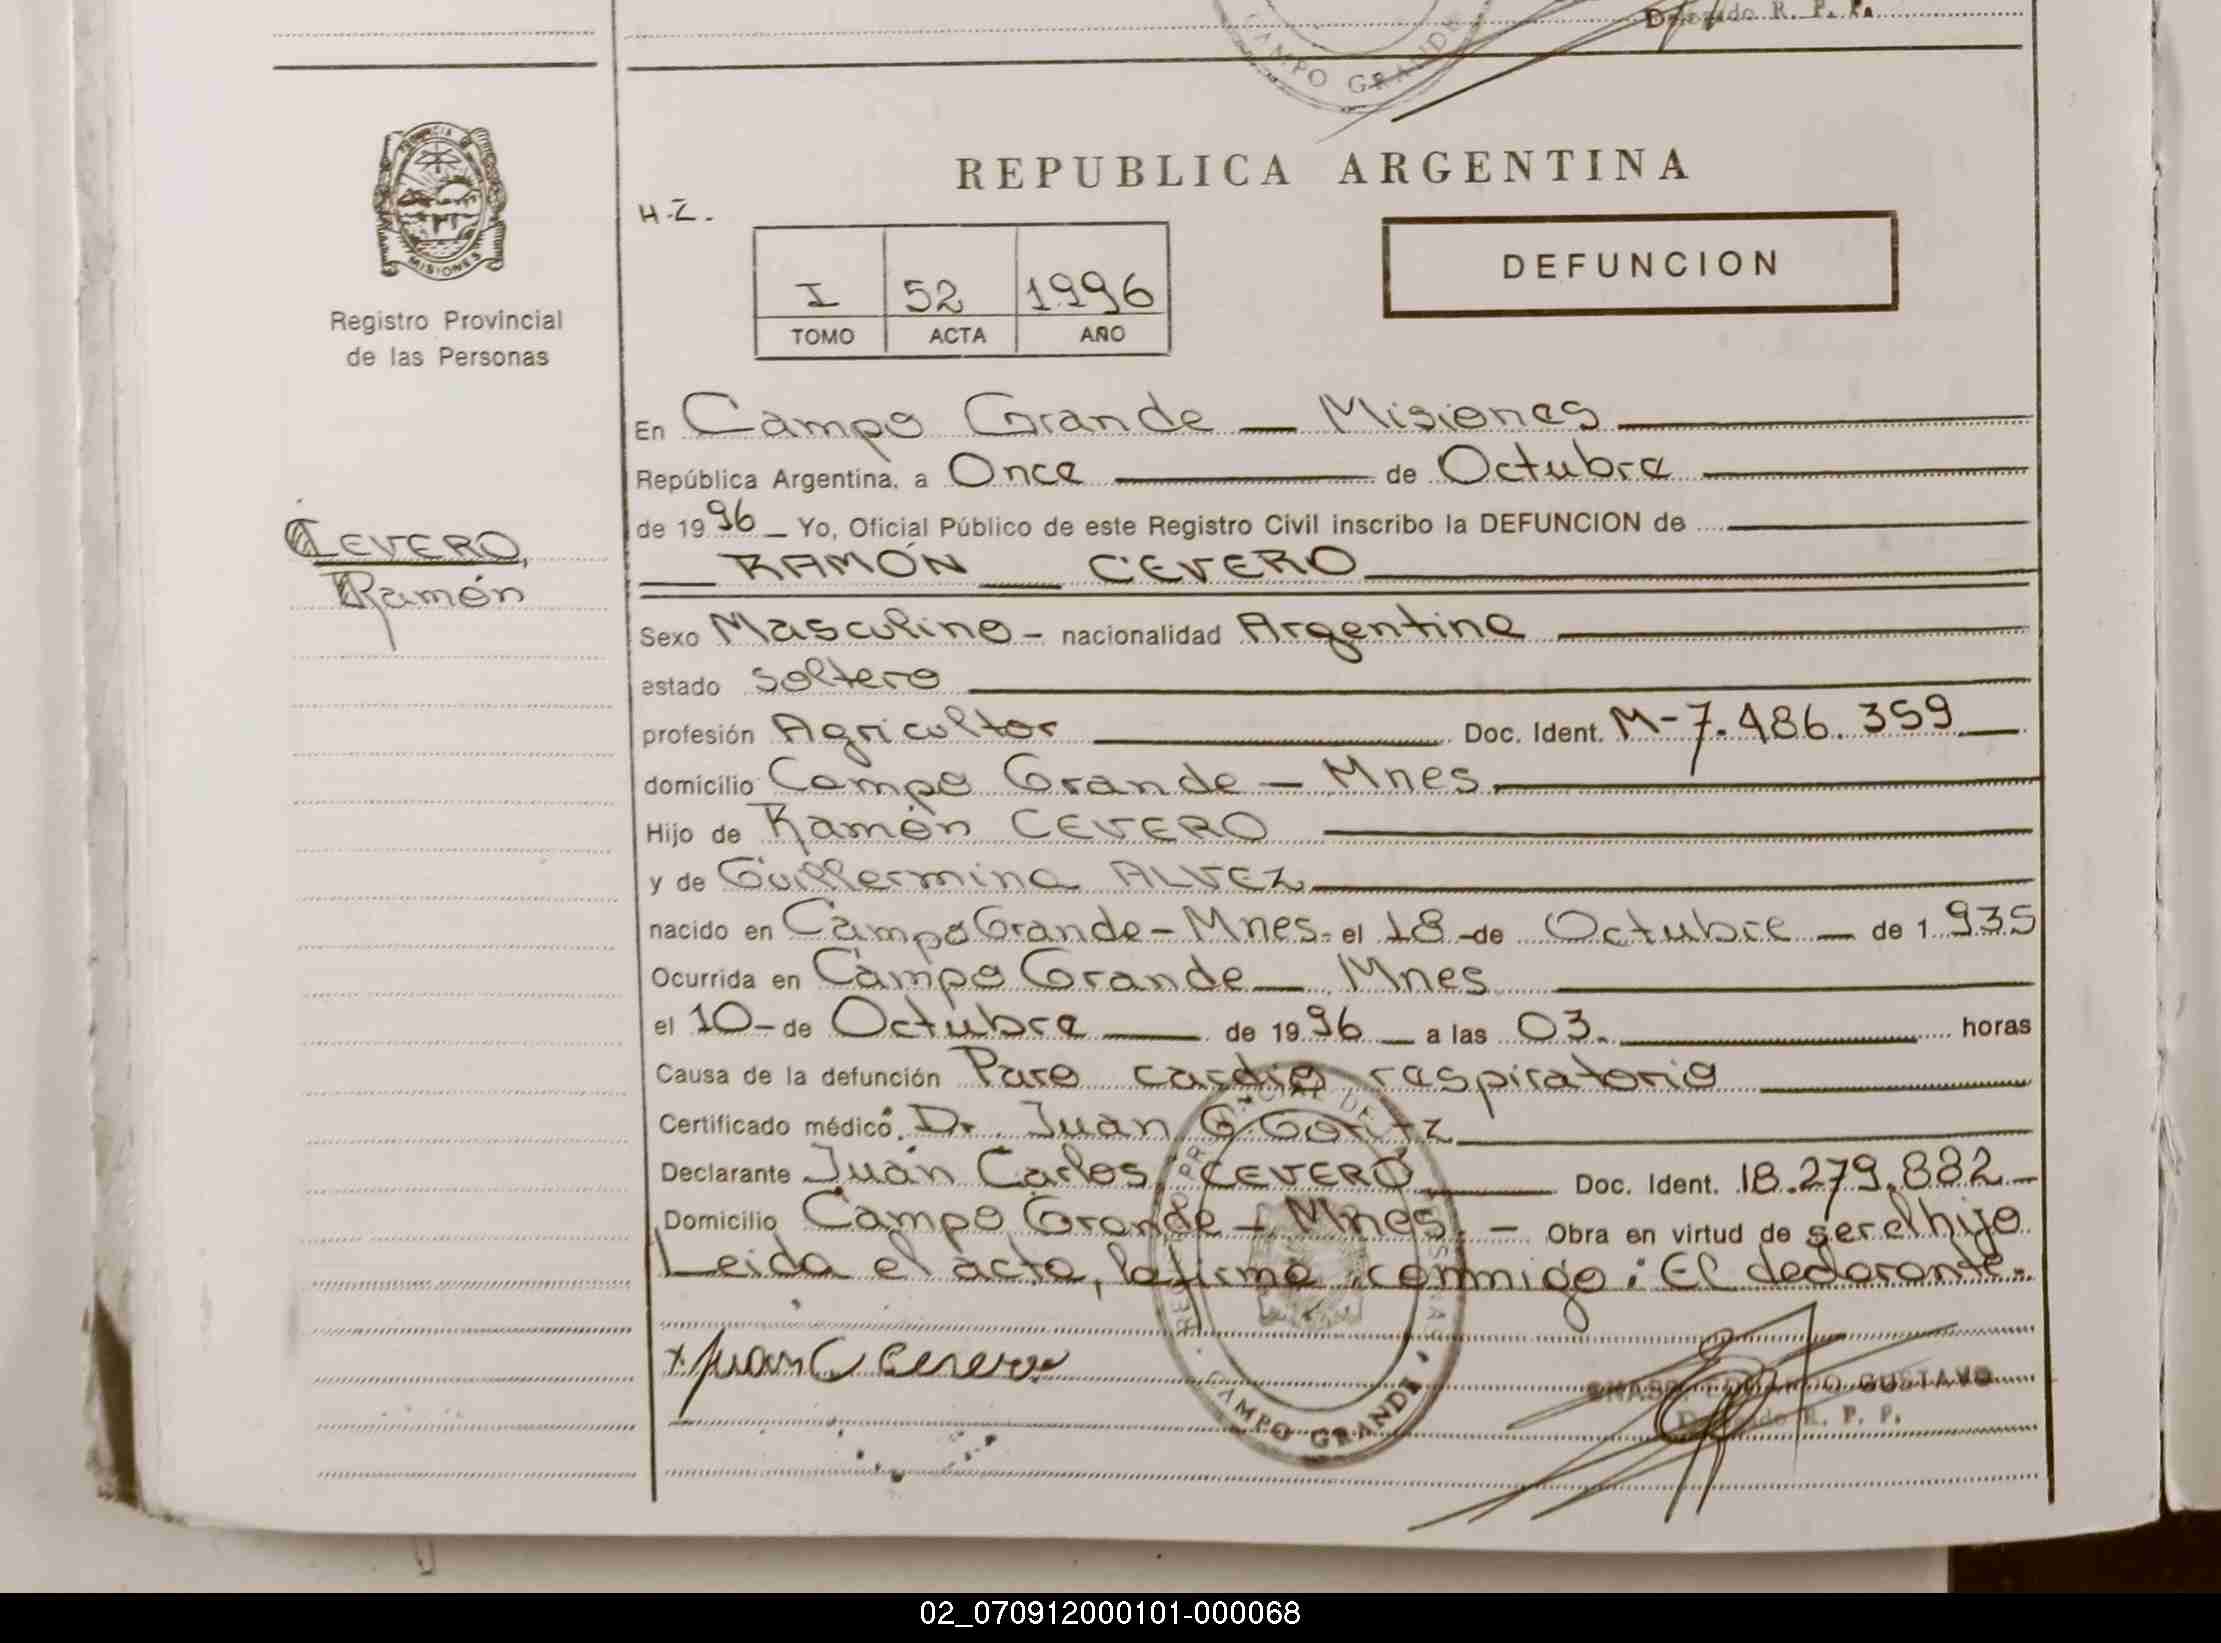 Delegado R. P. P.
CAMPO GRANDE
PROVINCIA
MISIONES
Registro Provincial
de las Personas
REPUBLICA ARGENTINA
H.I.
I 52 1996
TOMO ACTA AÑO
DEFUNCION
CEVERO,
Ramón
En Campo Grande — Misiones
República Argentina, a Once de Octubre
de 1996 — Yo, Oficial Público de este Registro Civil inscribo la DEFUNCION de
RAMÓN CEVERO
Sexo Masculino - nacionalidad Argentina
estado soltero
profesión Agricultor Doc. Ident. M-7.486.359
domicilio Campo Grande — Mnes
Hijo de Ramón CEVERO
y de Guillermina ALVEZ
nacido en Campo Grande - Mnes. el 18 - de Octubre — de 1.935
Ocurrida en Campo Grande — Mnes
el 10 - de Octubre de 1996 — a las 03. horas
Causa de la defunción Paro cardio respiratorio
Certificado médico. Dr. Juan G Goritz
Declarante Juan Carlos CEVERO Doc. Ident. 18.279.882 —
Domicilio Campo Grande — Mnes. — Obra en virtud de ser el hijo
Leida el acta, la firma conmigo: El declarante.
x Juan C Cevero
CAMPO GRANDE
EDUARDO GUSTAVO
Delegado R. P. P.
02_070912000101-000068